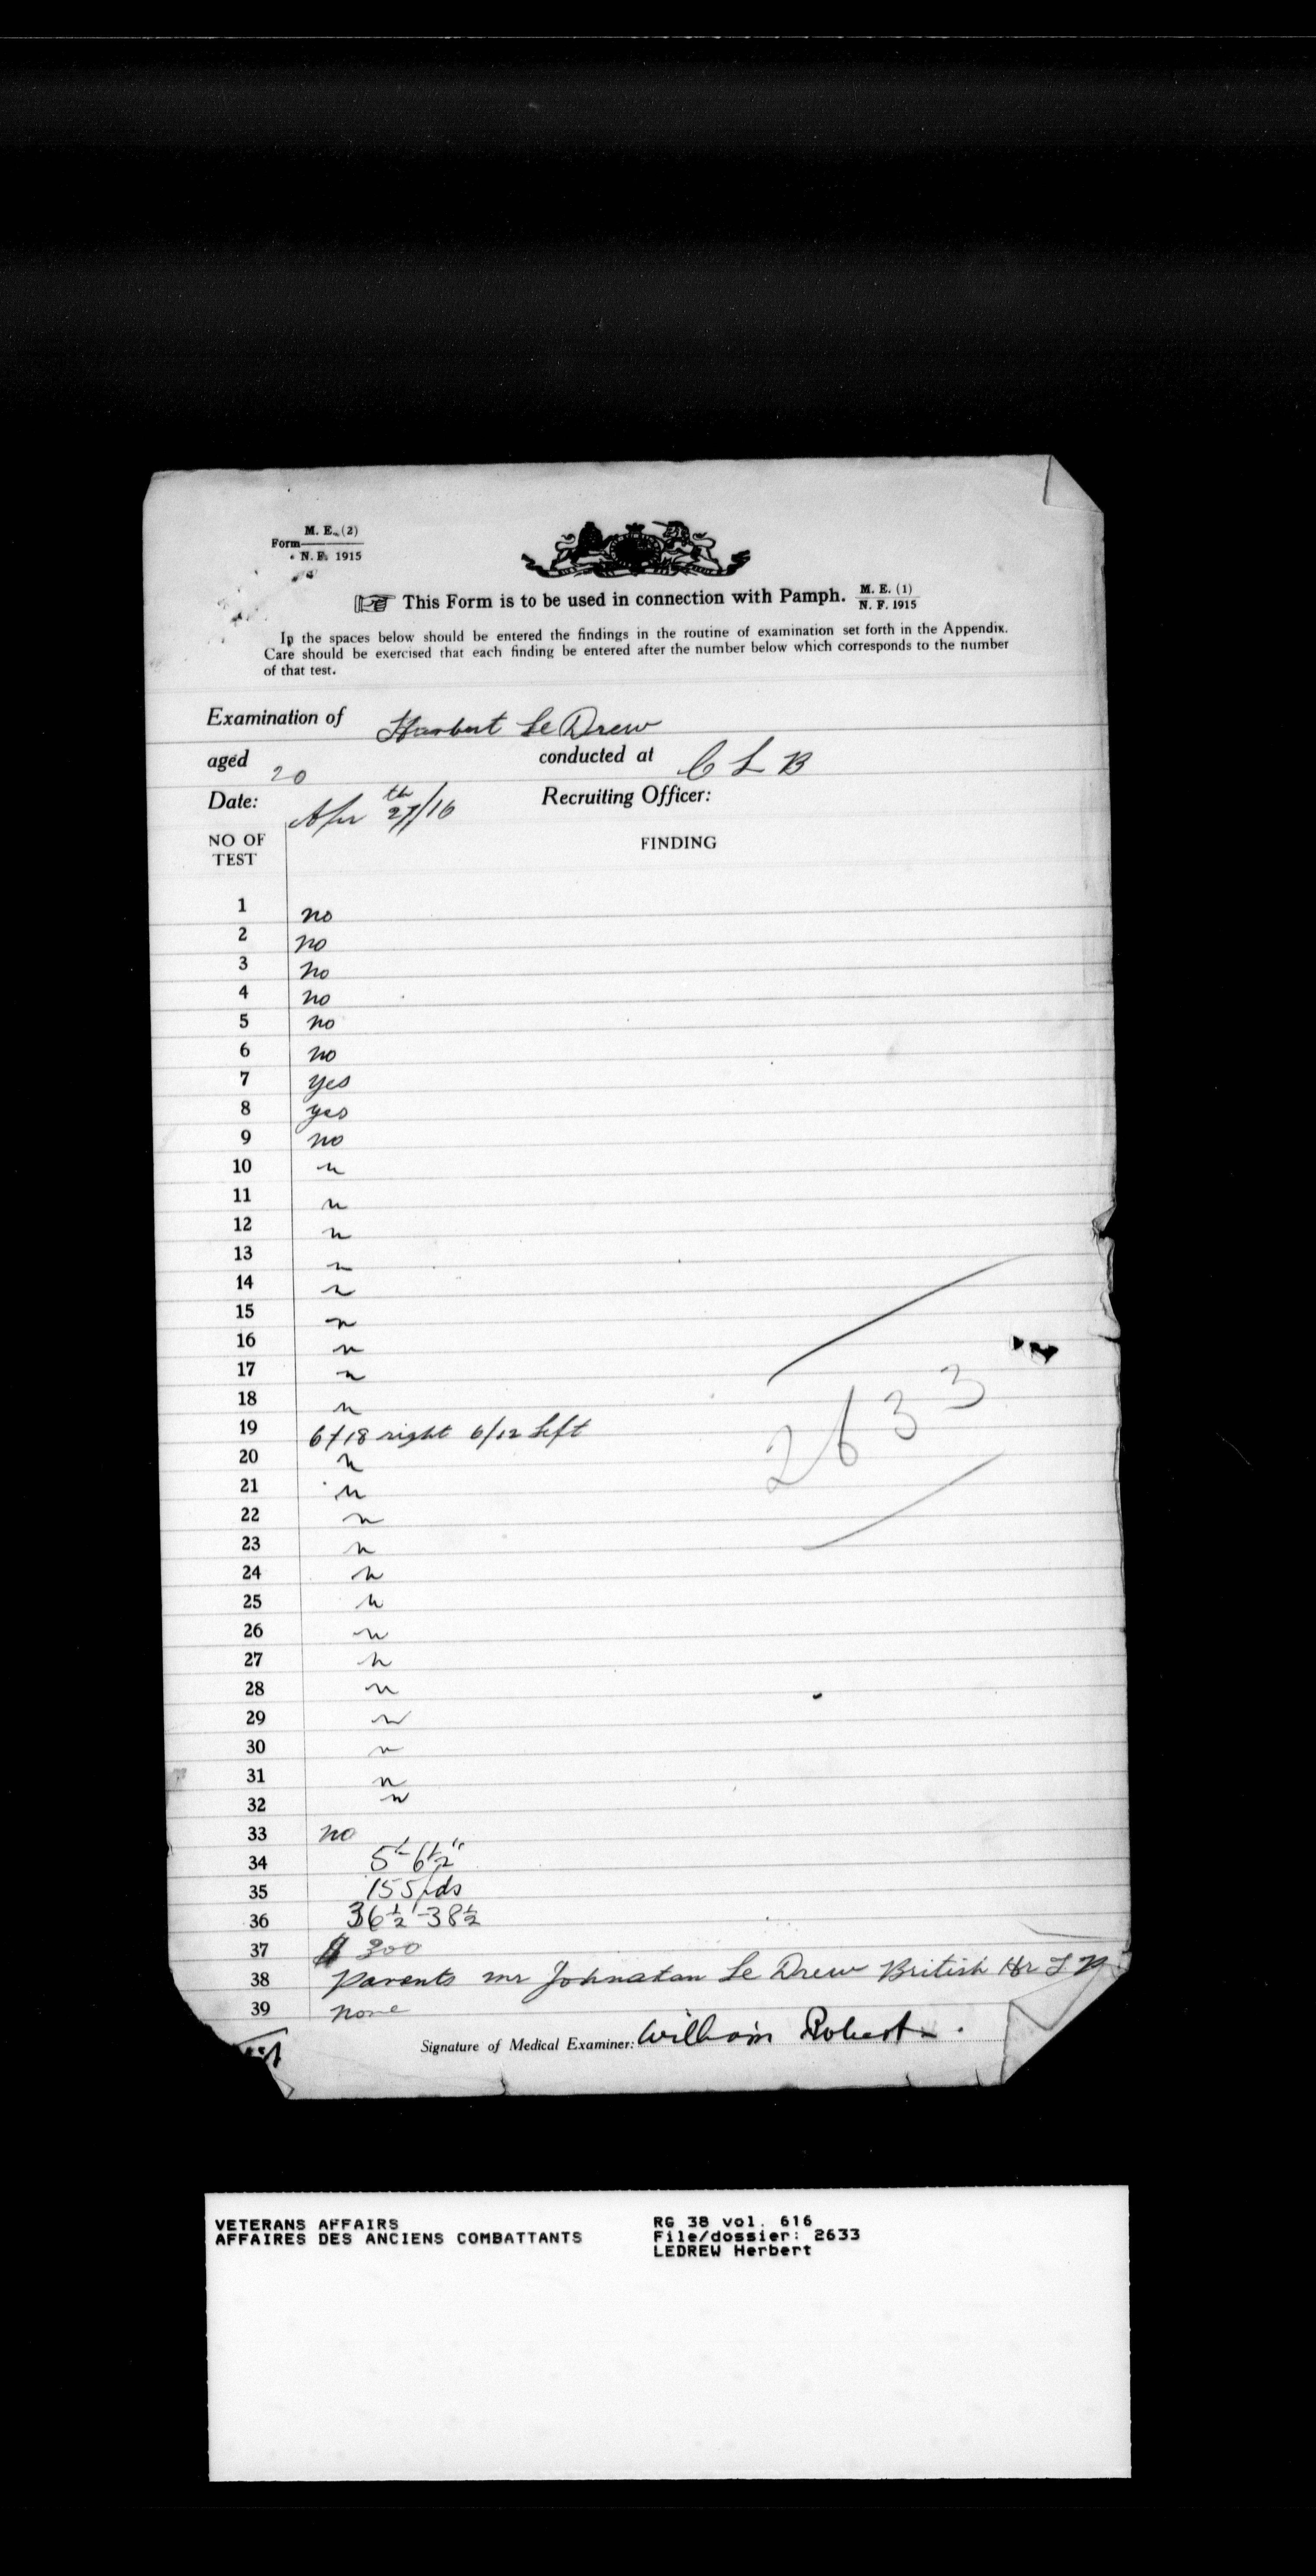 Form M. E. (2)
N. F. 1915
☞ This Form is to be used in connection with Pamph. M. E. (1)
N. F. 1915
In the spaces below should be entered the findings in the routine of examination set forth in the Appendix.
Care should be exercised that each finding be entered after the number below which corresponds to the number
of that test.
Examination of Harbert Le Drew
aged 20 conducted at C L B
Date: Apr 27th/16 Recruiting Officer:
NO OF TEST FINDING
1 no
2 no
3 no
4 no
5 no
6 no
7 yes
8 yes
9 no
10 n
11 n
12 n
13 n
14 n
15 n
16 n
17 n
18 n
19 6/18 right 6/12 Left
20 n
21 n
22 n
23 n
24 n
25 n
26 n
27 n
28 n
29 n
30 n
31 n
32 n
33 no
34 5'-6½"
35 155 pds
36 36½-38½
37 $ 300
38 Parents mr Johnatan Le Drew British Hr T B
39 none
2633
Signature of Medical Examiner: William Roberts.
VETERANS AFFAIRS RG 38 vol. 616
AFFAIRES DES ANCIENS COMBATTANTS File/dossier: 2633
LEDREW Herbert